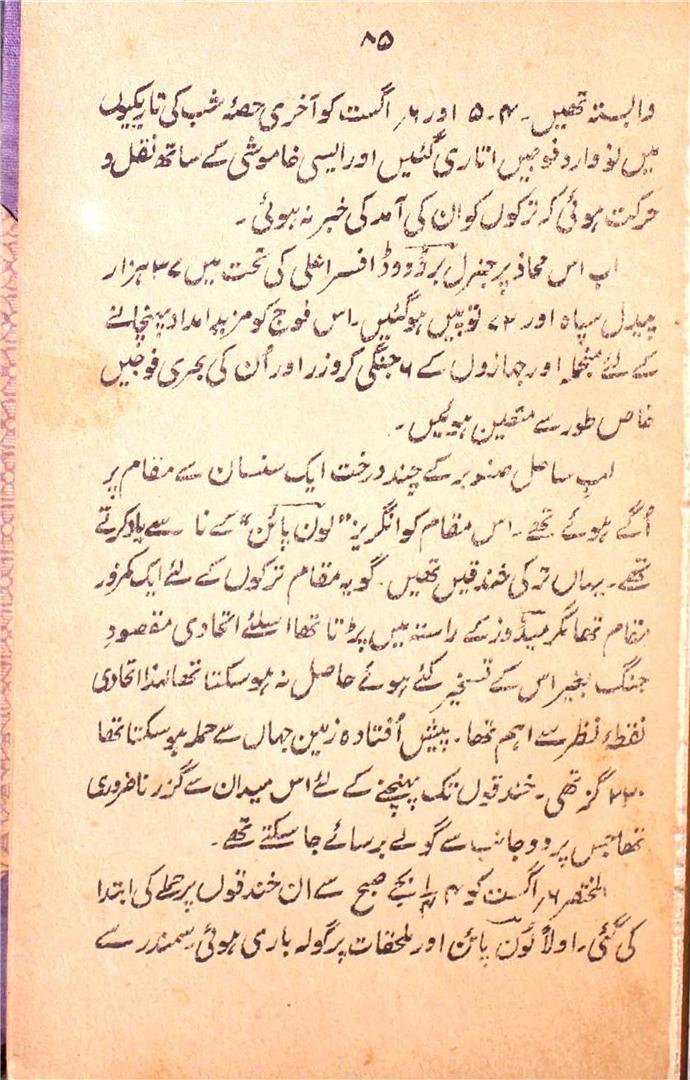 ۸۵
وابستہ تھیں۔ ۴۔ ۵ اور ۶؍ اگست کو آخری حصۂ شب کی تاریکیوں
میں نو وارد فوجیں اتاری گئیں اور ایسی خاموشی کے ساتھ نقل و
حرکت ہوئی کہ ترکوں کو ان کی آمد کی خبر نہ ہوئی۔
اب اس محاذ پر جنرل برڈووڈ افسر اعلیٰ کی تحت میں ۳۷ ہزار
پیدل سپاہ اور ۷۲ توپیں ہو گئیں۔ اس فوج کو مزید امداد پہنچانے
کے لئے منجملہ اور جہازوں کے ۶ جنگی کروزر اور اُن کی بحری فوجیں
خاص طور سے متعین ہوئیں۔
لبِ ساحل صنوبر کے چند درخت ایک سنسان سے مقام پر
اُگے ہوئے تھے۔ اس مقام کو انگریز "لون پائن" کے نا سے یاد کرتے
تھے۔ یہاں تر کی خندقیں تھیں۔ گو یہ مقام ترکوں کے لئے ایک کمزور
مقام تھا مگر میڈوز کے راستہ میں پڑتا تھا اسلئے اتحادی مقصودِ
جنگ بغیر اس کے تسخیر کئے ہوئے حاصل نہ ہو سکتا تھا لہذا اتحادی
نقطۂ نظر سے اہم تھا۔ پیش اُفتادہ زمین جہاں سے حملہ ہو سکتا تھا
۲۲۰ گز تھی۔ خندقوں تک پہنچنے کے لئے اس میدان سے گزرنا ضروری
تھا جس پر دو جانب سے گولے برسائے جا سکتے تھے۔
المختصر ۶؍ اگست کو ۴ بجے صبح سے ان خندقوں پر حملے کی ابتدا
کی گئی۔ اولاً لون پائن اور ملحقات پر گولہ باری ہوئی۔ سمندر سے